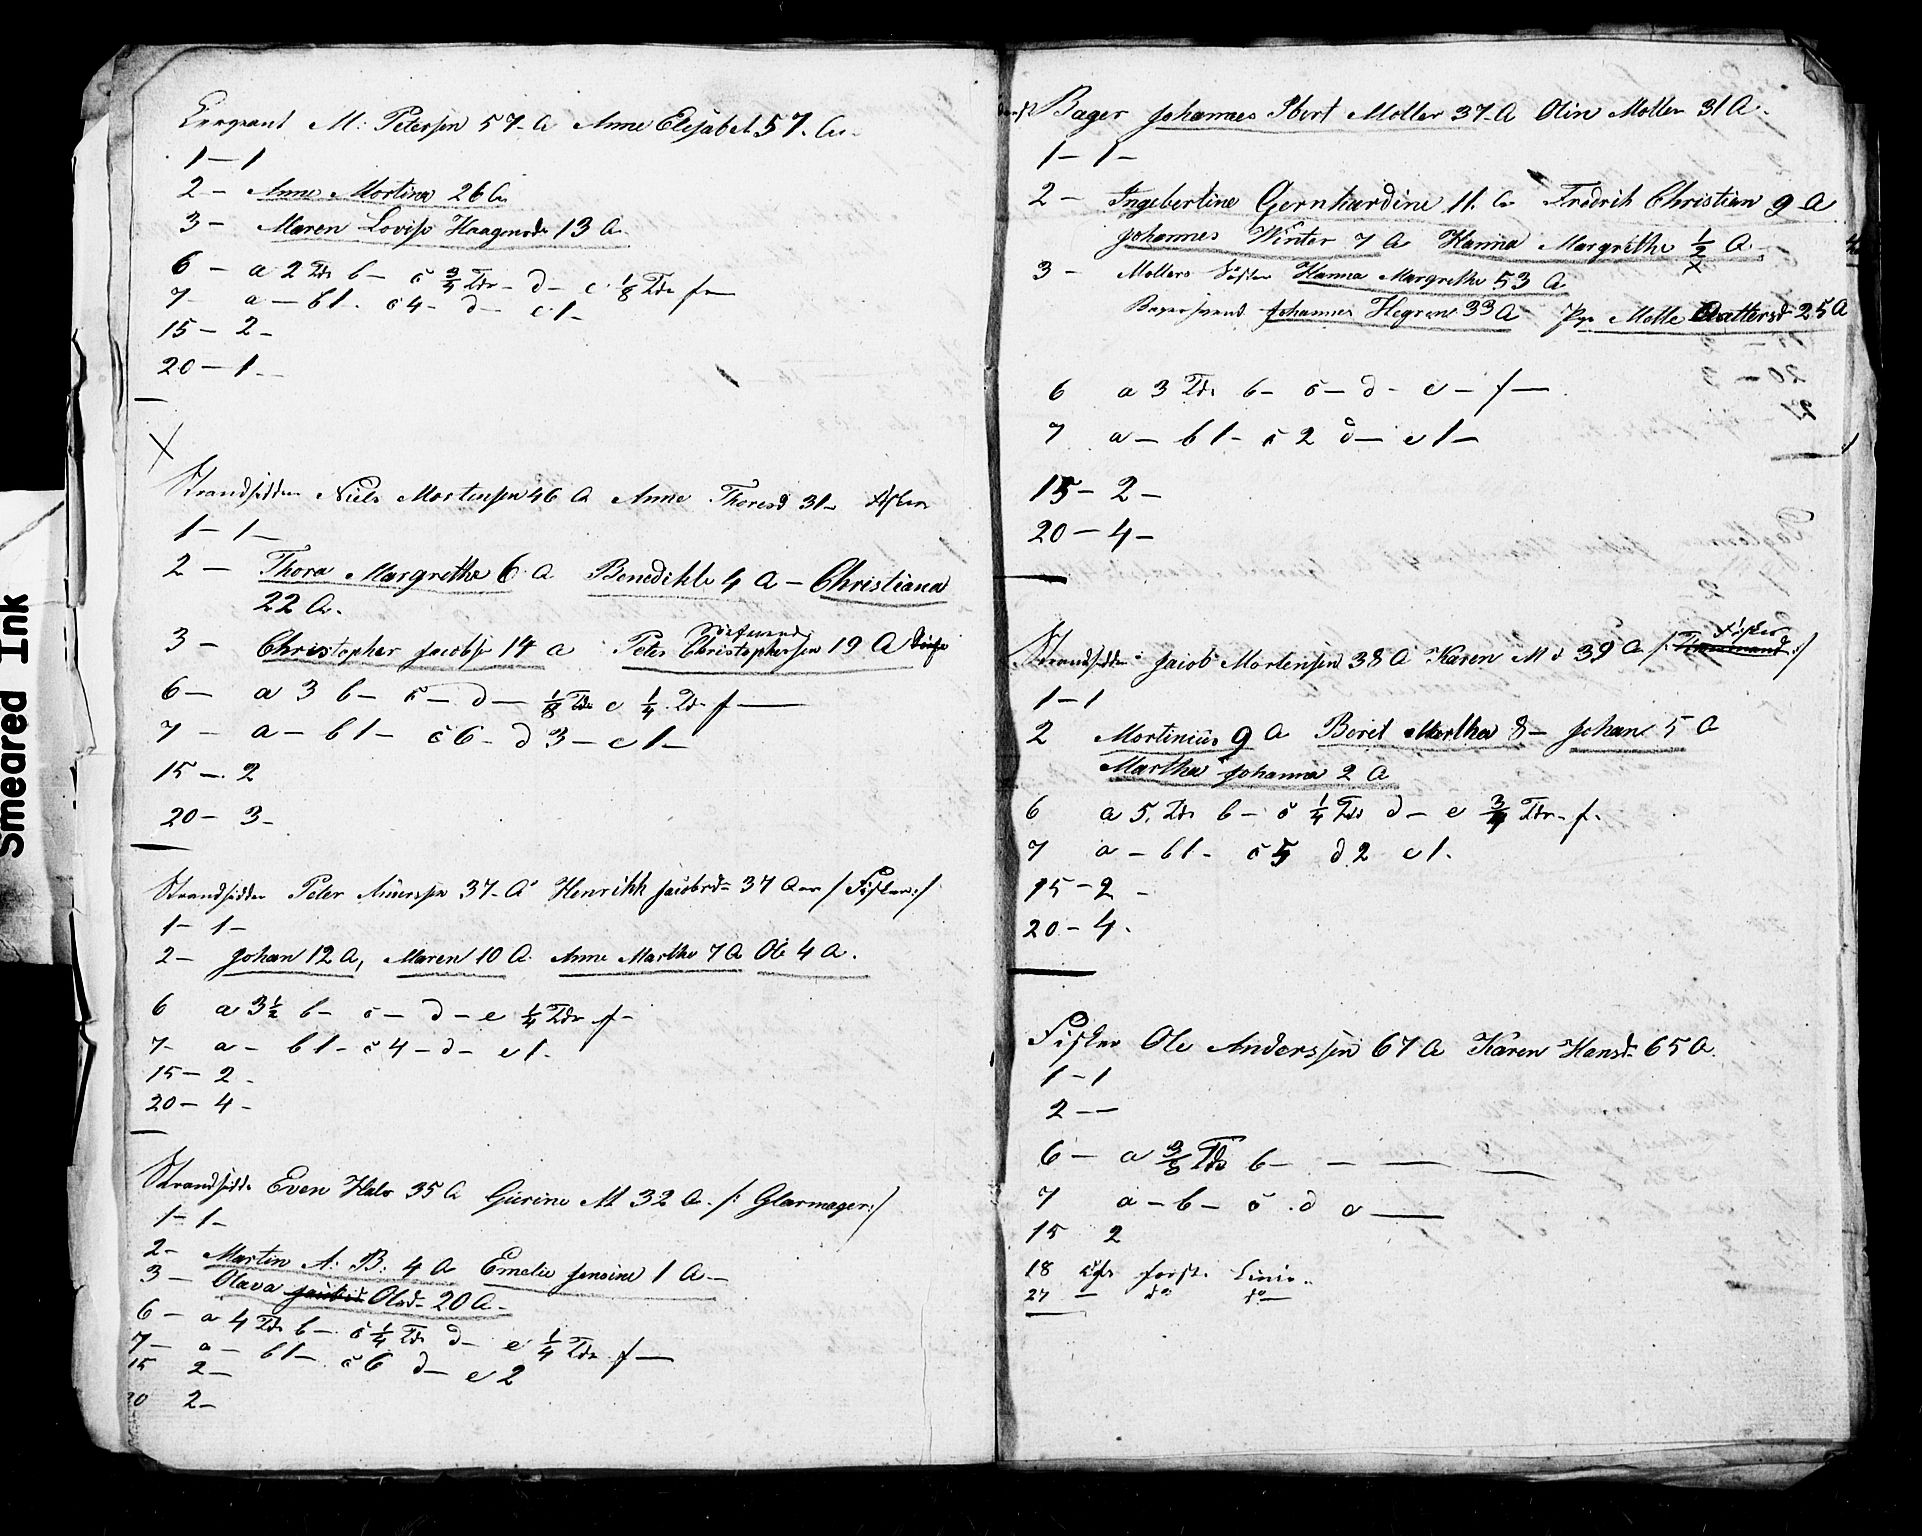 Sergeant M: Petersen 57- A Anne Elisabet 57. A.-
1 — 1
2 - Anne Mortine 26 A
3 - Maren Lovise Haagensd 13 A
6 - a 2 Tdr b - c 3/4 Tdr - d - e 1/8 Tdr f —
7 - a — b 1. c 4 - d - e 1 -
15 - 2 -
20 - 1 -
X
Strandsidder Niels Mortensen 46 A Anne Thoresd 31 - Fisker
1 - 1 -
2 - Thora Margrethe 6 A Benedikte 4 A - Christiana
22 A.
3 - Christopher Jacobs 14 a Peter Christophersen 19 A
6 - a 3 b - c - d - 1/8 Tdr e 1/4 Tdr f —
7 - a - b 1 - c 6 - d 3 - e 1 -
15 - 2
20 - 3 -
Strandsidder Peter 37- A Henrikke Jacobsd 37 A /: Fisker :/
1 - 1 -
2 - Johan 12 A, Maren 10 A Anne Marthe 7 A Ole 4 A.
6 a 3 1/2 b - c - d - e 1/4 Tdr f -
7 - a - b 1 - c 4 - d - e 1 -
15 - 2 -
20 - 4 -
Strandsidde Even Halv 35 A Gurine M 32 A. /: Glarmager :/
1 - 1 -
2 - Martin A: B: 4 A Emelie 1 A -
3 - Olava Olsd 20 A -
6 - a 4 Tdr b - c 1/4 Tdr d - e 1/4 Tdr f —
7 - a - b 1 - c 6 d - e 2
15 2 -
20 2 -
Bager Johannes Møller 37- A Olin Møller 31 A.
1 - 1 -
2 - Ingebertine Gernhardine 11. A Fredrik Christian 9 A
Johannes Winter 7 A Hanna Margrethe 1/2 A.
3 - Møllers Søster Hanna Margrethe 53 A
Bagersvend Johannes Hegrem 33 A Pige Mette 25 A
6 a 3 Tdr b - c - d - e - f —
7 a - b 1 - c 2 d - e 1 -
15 - 2 -
20 - 4 -
Strandsidder Jacob Mortensen 38 A Karen M d 39 A /: Fisker :/
1 - 1
2 Mortinius 9 A Beret Martha 8 - Johan 5 A
Martha Johanna 2 A
6 a 5. Tdr b - c 1/4 Tdr d - e 3/4 Tdr - f -
7 a - b 1 - c 5 d 2 e 1.
15 - 2 -
20 - 4.
Fisker Ole Anderssen 67 A Karen Hansd 65 A.
1 - 1
2 - -
6 - a 3/8 Tdr b - - — —
7 a - b - c . d e —
15 2
18 første Linie ..
27 — do do —
Smeared Ink